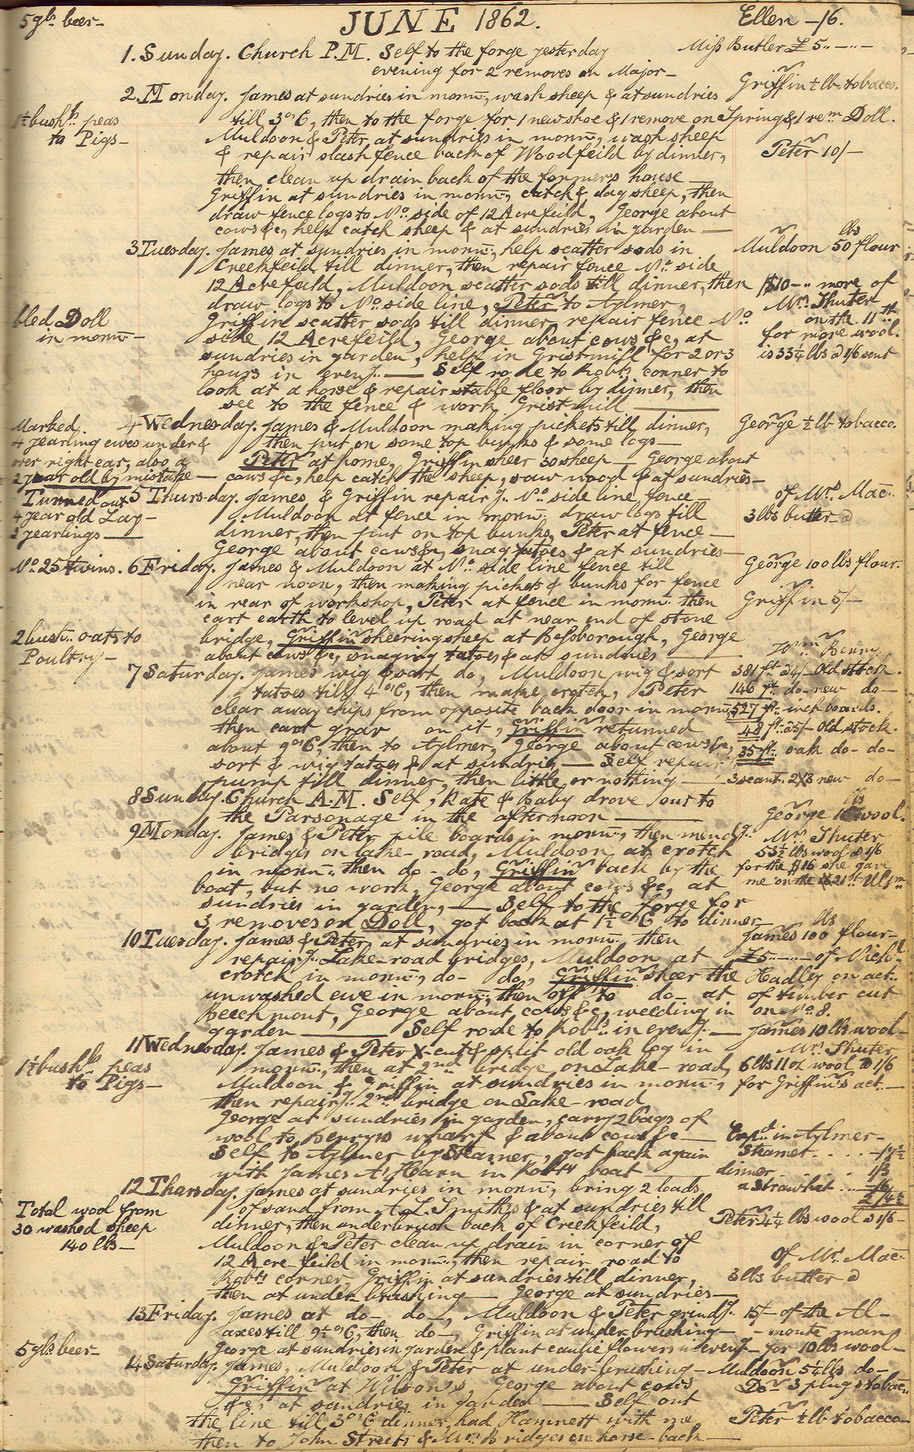 5 gls. beer-
JUNE 1862.
Ellen -16.
1. Sunday. Church P.M. Self to the forge yesterday
evening for 2 removes on Major-
Miss Butler £5..-..-
2. Monday. James at sundries in morng, wash sheep & at sundries
Griffin ½ lb. tobacco.
till 3 o'C, then to the forge for 1 new shoe & 1 remove on Spring & 1 rem Doll.
1½ bushls. peas
to Pigs-
Muldoon & Peter at sundries in morng, wash sheep
& repair slash fence back of Woodfeild by dinner,
Peter 10/-
then clean up drain back of the formers house
Griffin at sundries in morng, catch & dag sheep, then
draw fence logs to No. side of 12 Acrefeild, George about
cows &c, help catch sheep & at sundries in garden-
3 Tuesday. James at sundries in morng, help scatter sods in
Muldoon 50 lbs flour
Creekfeild till dinner, then repair fence No. side
12 Acrefeild, Muldoon scatter sods till dinner, then
draw logs to No. side line, Peter to Aylmer,
$10-.. more of
Mrs. Shuter
on the 11th
for more wool.
is 33¼ lbs @ 1/6 sent
bled Doll
in morng-
Griffin scatter sods till dinner, repair fence No.
side 12 Acrefeild, George about cows &c, at
sundries in garden, help in Gristmill for 2 or 3
hours in eveng.- Self rode to Robts. corner to
look at a horse & repair stable floor by dinner, then
see to the fence & work, Grist mill
Marked,
4 yearling ewes under &
over right ear, also a
2 year old by mistake-
4 Wednesday. James & Muldoon making pickets till dinner,
then put on some top bunks & some logs-
George ½ lb tobacco.
Peter at home, Griffin sheer 30 sheep- George about
cows &c, help catch the sheep, saw wood & at sundries-
Turned out
4 year old Lay-
2 yearlings-
5 Thursday. James & Griffin repairg. No. side line fence-
Muldoon at fence in morng. draw logs till
of Mrs. Mac.
3 lbs butter @
dinner, then put on top bunks, Peter at fence-
George about cows &c, snag tatoes & at sundries-
No. 25 twins.
6 Friday. James & Muldoon at No. side line fence till
George 100 lbs flour.
near noon, then making pickets & bunks for fence
in rear of workshop, Peter at fence in morng. then
Griffin 5/-
cart earth to level up road at war end of stone
2 bush. oats to
Poultry-
bridge, Griffin sheering sheep at Besborough, George
about cows &c, snaging tatoes & at sundries
7 Saturday. James wig & sort do, Muldoon wig & sort
tatoes till 4 o'C, then make crotch, Peter
Wm. Benny
381 ft. @ 4/- Old stock.
146 ft. do- new do-
527 ft. inch boards.
48 ft. @ 5/- Old stock.
35 ft. oak do- do-
3 scant. 2X3 new do-
clear away chips from opposite back door in morng,
then cart grav on it, Griffin returned
about 9 o'C, then to Aylmer, George about cows &c,
sort & wig tatoes & at sundries- Self repair
pump till dinner, then little or nothing-
8 Sunday. Church A.M. Self, Kate & baby drove out to
the Parsonage in the afternoon
George lbs wool.
9 Monday. James & Peter pile boards in morng, then mendg.
bridges on Lake-road, Muldoon at crotch
Mrs. Shuter
53½ lbs wool @ 1/6
for the $16 she gave
me on the 21st Ultm
in morng, then do-do, Griffin back by the
boat, but no work, George about cows &c, at
sundries in garden,- Self to the forge for
3 removes on Doll, got back at 1½ o'C to dinner
10 Tuesday. James & Peter at sundries in morng. then
James 100 lbs flour-
repairg. Lake-road bridges, Muldoon at
£5..-..- of Michl.
crotch in morng, do- do, Griffin sheer the
Hadley on act.
unwashed ewe in morng, then off to do- at
of timber cut
Beechmont, George about cows &c, weeding in
on No. 8.
garden- Self rode to Robts. in eveng.-
James 10 lbs wool-
1½ bushls. peas
to Pigs-
11 Wednesday. James & Peter X-cut & split old oak log in
morng, then at 2nd. bridge on Lake-road,
Mrs. Shuter
6 lbs 11 oz wool @ 1/6
for Griffin's act.-
Muldoon & Griffin at sundries in morng,
then repairg. 2nd. bridge on Lake-road
George at sundries in garden, carry 2 bags of
wool to Berrys wharf & about cows &c-
Self to Aylmer by Steamer, got back again
with James A'Hearn in Robts boat-
Expd. in Aylmer-
Steamer . . . -
dinner
a straw hat
12 Thursday. James at sundries in morng, bring 2 loads
of sand from C.L. Smyths & at sundries till
dinner, then underbrush back of Creekfeild,
Total wool from
30 washed sheep
140 lbs-
Peter 4¼ lbs wool @ 1/6-
Muldoon & Peter clean up drain in corner of
12 Acre-feild in morng, then repair road to
Robts. corner, Griffin at sundries till dinner,
then at under brushing- George at sundries-
of Mrs. Mac
3 lbs butter @
13 Friday. James at do- do-, Muldoon & Peter grindg.
axes till 9½ o'C, then do-, Griffin at under brushing-
15/- of the Al-
-monte man
for 10 lbs wool-
5 gls beer-
George at sundries in garden & plant caulie flowers in eveng-
14 Saturday. James, Muldoon & Peter at under-brushing-
Muldoon 5½ lbs do-
Griffin at Wilson's, George about cows
Do. 3 plugs tobac.
&c, at sundries in garden- Self out
the line till 3 o'C dinner, had Hamnett with me,
Peter ½ lb tobacco
then to John Streets & Mrs. Bridges on horse-back-